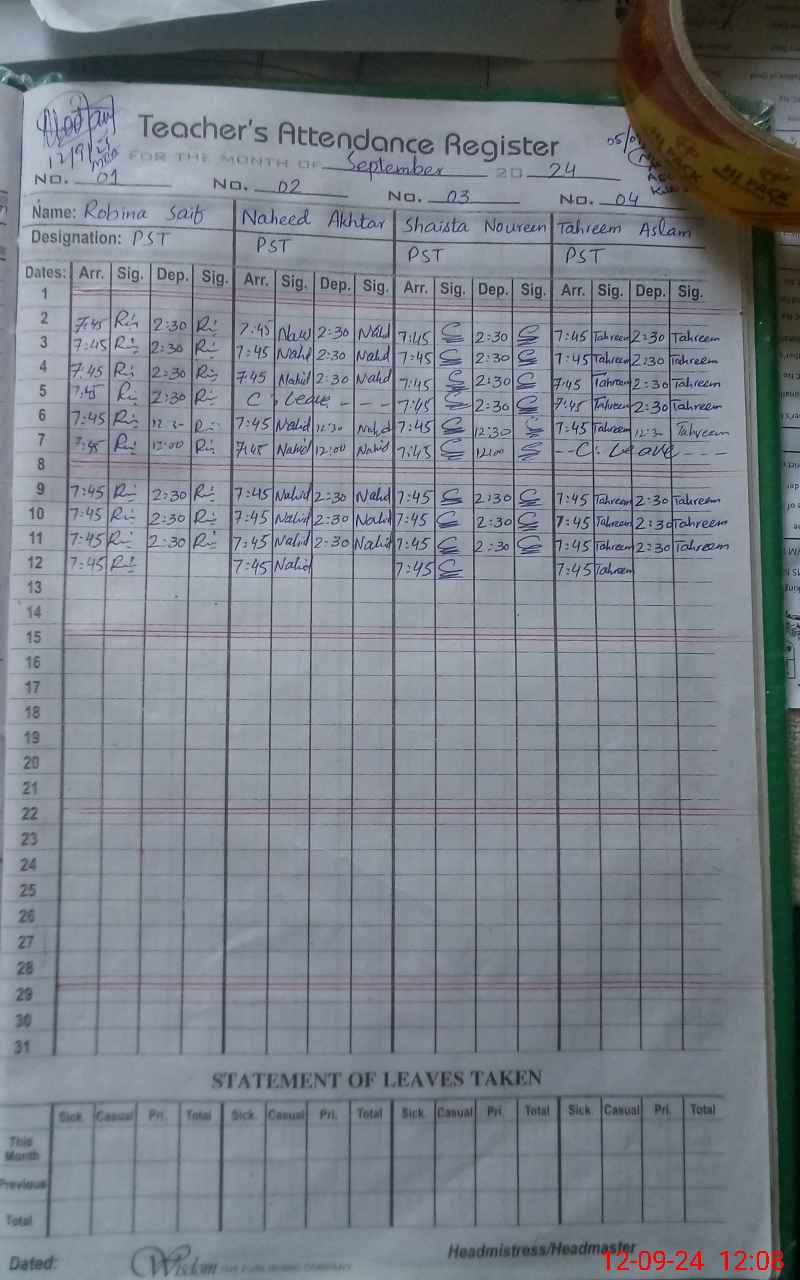 12/9/24
Teacher's Attendance Register
FOR THE MONTH OF September 20 24
No. 01 No. 02 No. 03 No. 04
Name: Robina Saif Naheed Akhtar Shaista Noureen Tahreem Aslam
Designation: PST PST PST PST
Dates: Arr. Sig. Dep. Sig. Arr. Sig. Dep. Sig. Arr. Sig. Dep. Sig. Arr. Sig. Dep. Sig.
1
2 7:45 2:30 7:45 2:30 Nahd 7:45 2:30 7:45 Tahreem 2:30 Tahreem
3 7:45 2:30 7:45 Nahd 2:30 Nahd 7:45 2:30 7:45 Tahreem 2:30 Tahreem
4 7:45 2:30 7:45 Nahid 2:30 Nahd 7:45 2:30 7:45 Tahreem 2:30 Tahreem
5 7:45 2:30 C. Leave - - - 7:45 2:30 7:45 Tahreem 2:30 Tahreem
6 7:45 12:30 7:45 Nahid 12:30 Nahid 7:45 12:30 7:45 Tahreem 12:30 Tahreem
7 7:45 12:00 7:45 Nahid 12:00 Nahid 7:45 12:00 --C. Leave ---
8
9 7:45 2:30 7:45 Nahid 2:30 Nahid 7:45 2:30 7:45 Tahreem 2:30 Tahreem
10 7:45 2:30 7:45 Nahid 2:30 Nahid 7:45 2:30 7:45 Tahreem 2:30 Tahreem
11 7:45 2:30 7:45 Nahid 2:30 Nahid 7:45 2:30 7:45 Tahreem 2:30 Tahreem
12 7:45 7:45 Nahid 7:45 7:45 Tahreem
13
14
15
16
17
18
19
20
21
22
23
24
25
26
27
28
29
30
31
STATEMENT OF LEAVES TAKEN
Sick Casual Pri. Total Sick Casual Pri. Total Sick Casual Pri Total Sick Casual Pri. Total
This Month
Previous
Total
Dated: Wisdom Headmistress/Headmaster
12-09-24 12:08